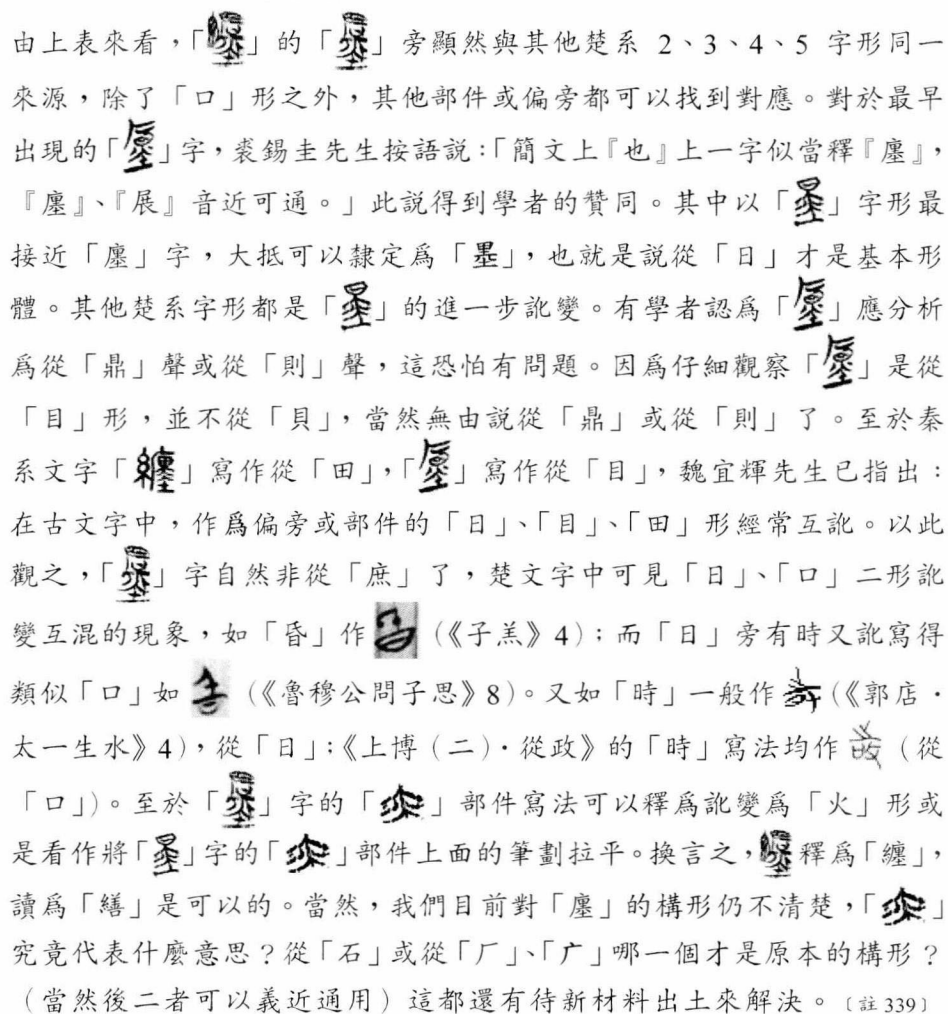 由上表來看，「」的「」旁顯然與其他楚系 2、3、4、5 字形同一
來源，除了「口」形之外，其他部件或偏旁都可以找到對應。對於最早
出現的「」字，裘錫圭先生按語說：「簡文上『也』上一字似當釋『廛』，
『廛』、『展』音近可通。」此說得到學者的贊同。其中以「」字形最
接近「廛」字，大抵可以隸定爲「」，也就是說從「日」才是基本形
體。其他楚系字形都是「」的進一步訛變。有學者認爲「」應分析
爲從「鼎」聲或從「則」聲，這恐怕有問題。因爲仔細觀察「」是從
「目」形，並不從「貝」，當然無由說從「鼎」或從「則」了。至於秦
系文字「」寫作從「田」，「」寫作從「目」，魏宜輝先生已指出：
在古文字中，作爲偏旁或部件的「日」、「目」、「田」形經常互訛。以此
觀之，「」字自然非從「庶」了，楚文字中可見「日」、「口」二形訛
變互混的現象，如「昏」作（《子羔》4）；而「日」旁有時又訛寫得
類似「口」如（《魯穆公問子思》8）。又如「時」一般作（《郭店・
太一生水》4），從「日」；《上博（二）・從政》的「時」寫法均作（從
「口」）。至於「」字的「」部件寫法可以釋爲訛變爲「火」形或
是看作將「」字的「」部件上面的筆劃拉平。換言之，釋爲「纏」，
讀爲「繕」是可以的。當然，我們目前對「廛」的構形仍不清楚，「」
究竟代表什麼意思？從「石」或從「厂」、「广」哪一個才是原本的構形？
（當然後二者可以義近通用）這都還有待新材料出土來解決。〔註 339〕